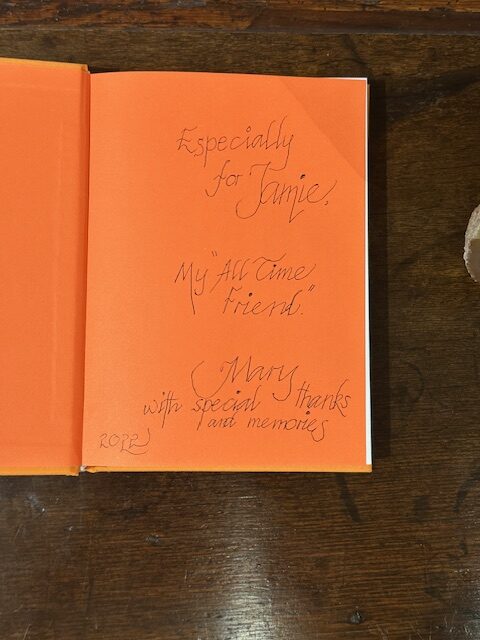 Especially
for Jamie,
My "All Time
Friend."
Mary
with special thanks
and memories
2022